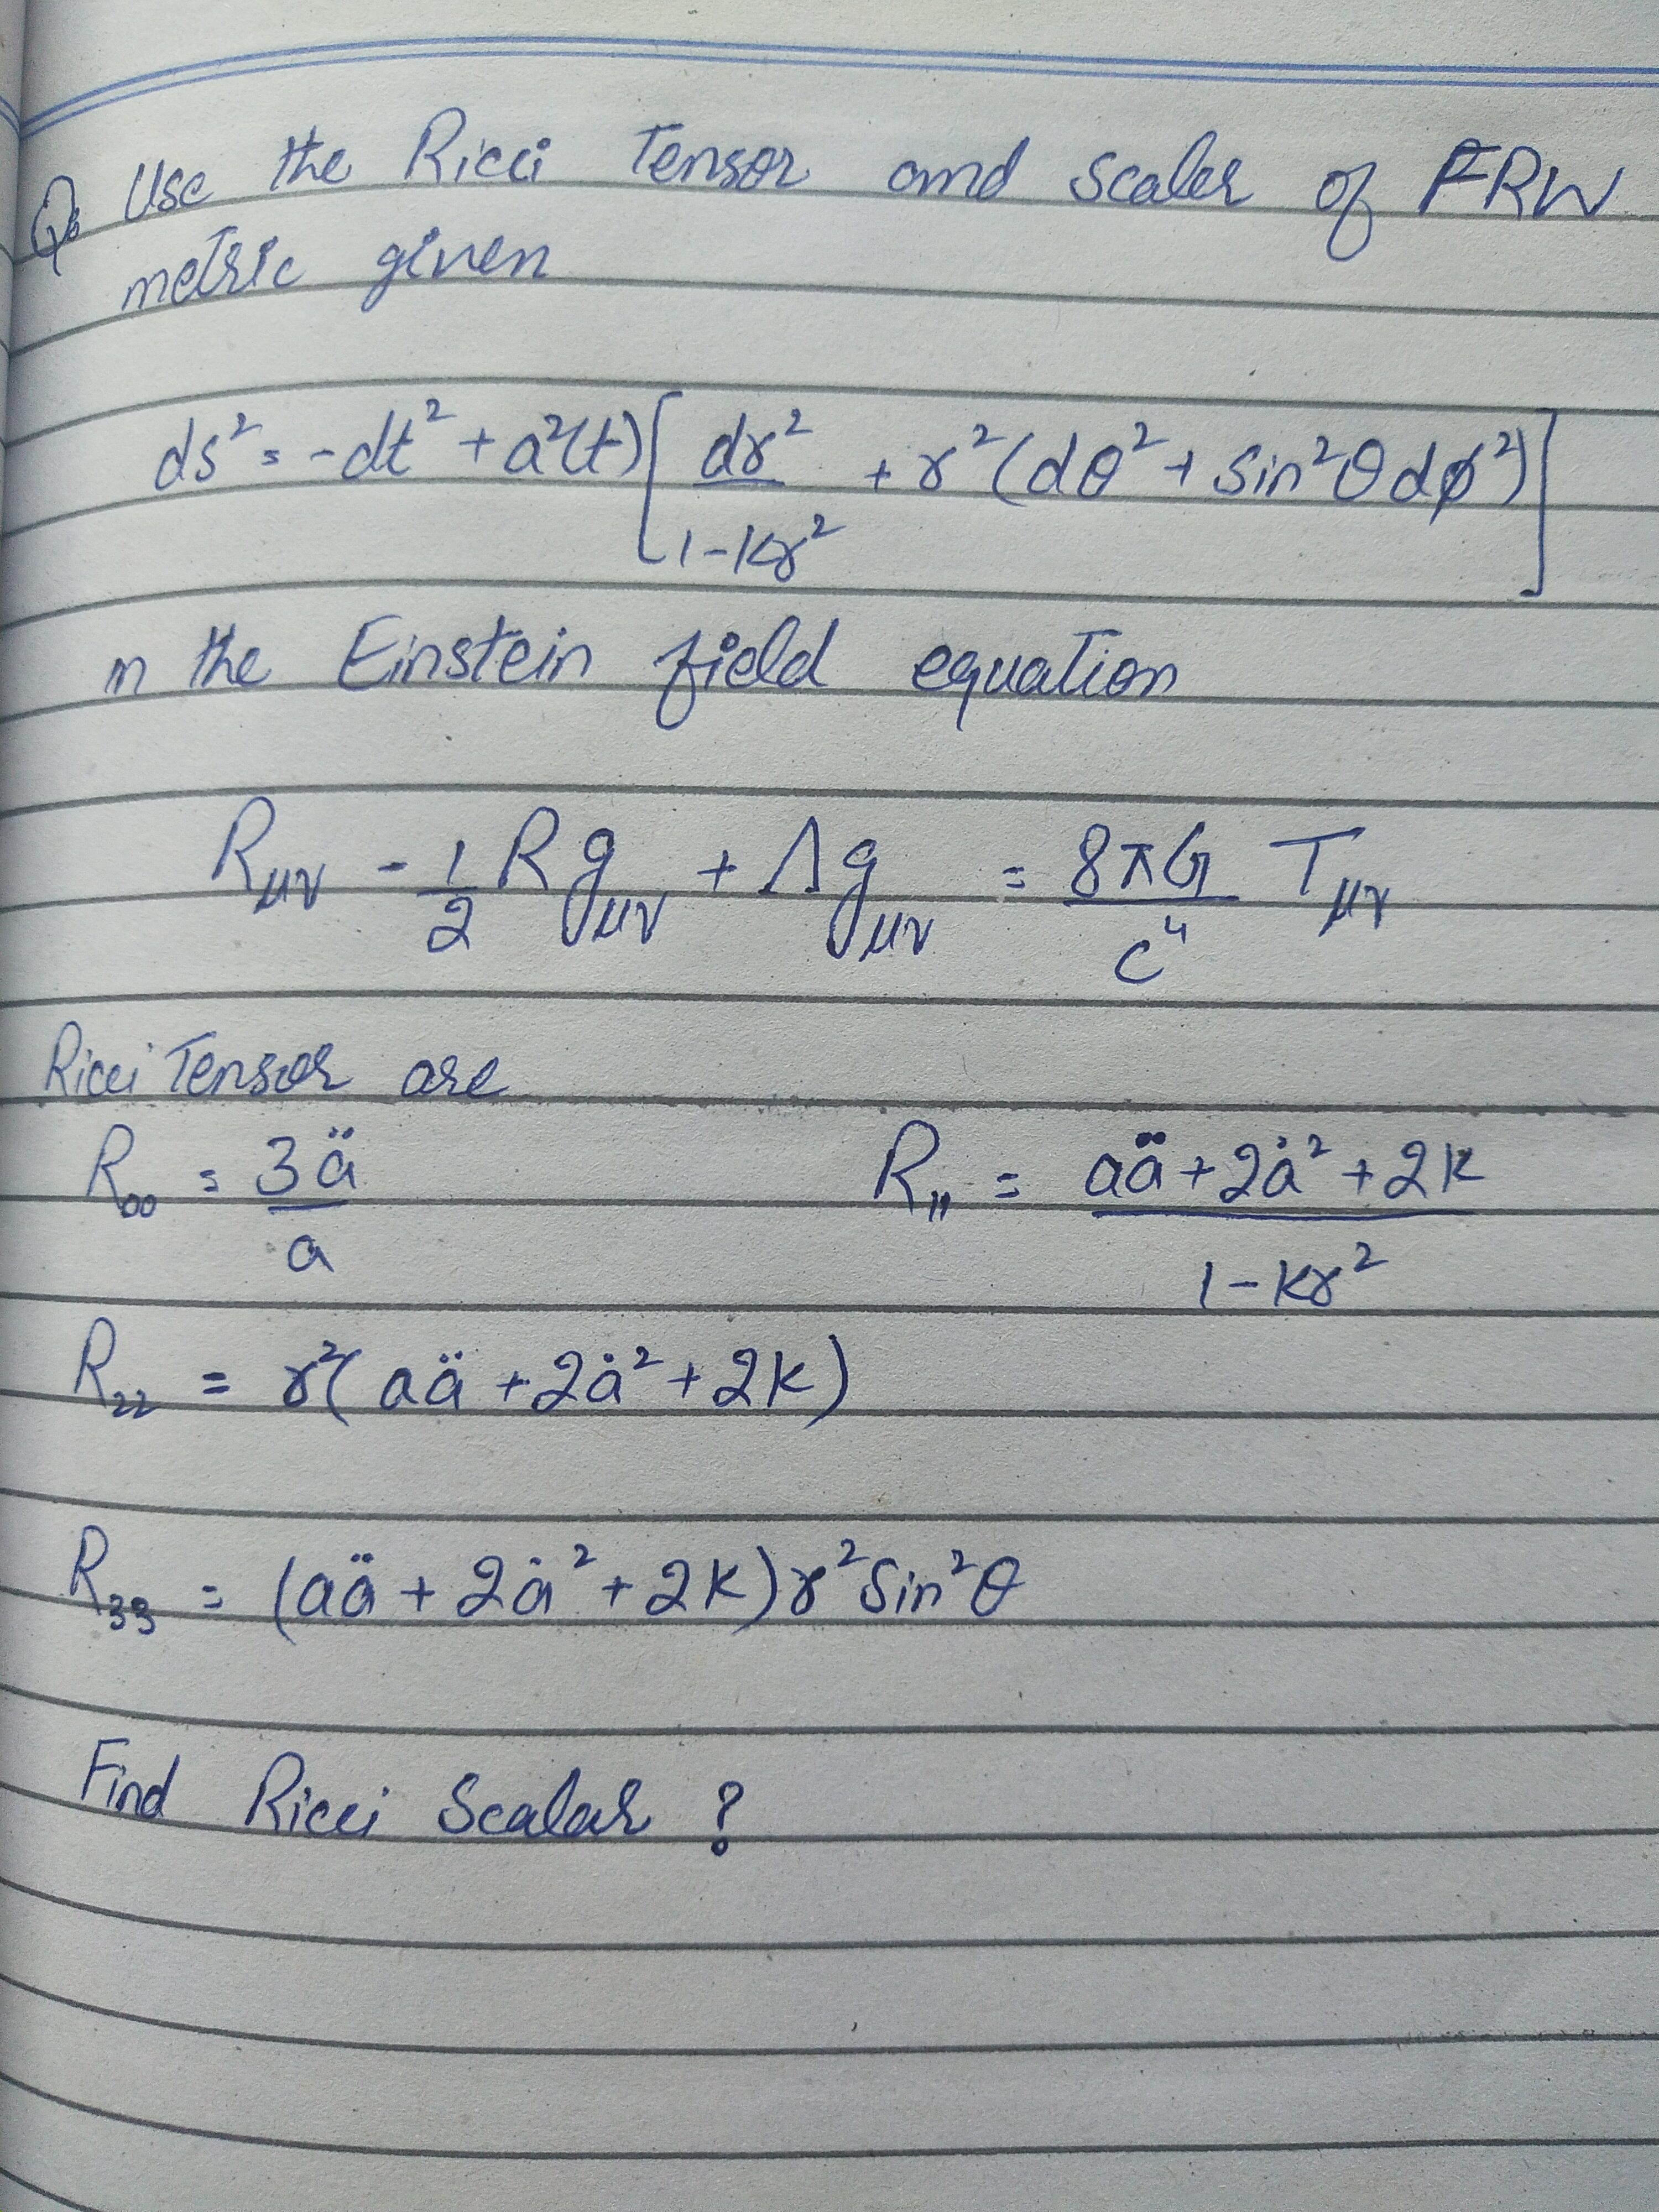 Q. Use the Ricci Tensor and scaler of FRW
metric given
ds² = -dt² + a²(t)[dr²/(1-kr²) + r²(dθ² + sin²θdφ²)]
in the Einstein field equation
Rμν - 1/2 Rgμν + Λgμν = 8πG/c⁴ Tμν
Ricci Tensor are
R₀₀ = 3ä/a R₁₁ = (aä + 2ȧ² + 2k)/(1-kr²)
R₂₂ = r²(aä + 2ȧ² + 2k)
R₃₃ = (aä + 2ȧ² + 2k)r²sin²θ
Find Ricci Scalar ?